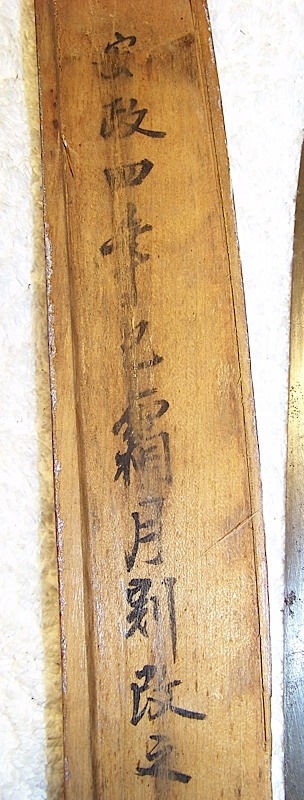 安政四年巳霜月剔改之